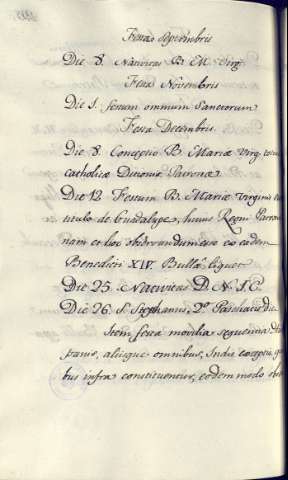 Festa Septembris
Die 8. Nativitas B. M. Virg.
Festa Novembris
Die 1. festum omnium Sanctorum
Festa Decembris
Die 8. Conceptio B. Mariæ Virg.
Catholicæ Ditionis Patronæ
Die 12. Festum B. Mariæ Virginis
titulo de Guadalupe, huius Regni
nam et hoc observandum esse ex eadem
Benedicti XIV. Bullâ liquet
Die 25. Nativitas D. N. J. C.
Die 26. S. Stephanus. 2.ª Paschatis
item festa mobilia sequentia
aliisque omnibus, Indis exceptis,
bus infra constituentur, eodem modo